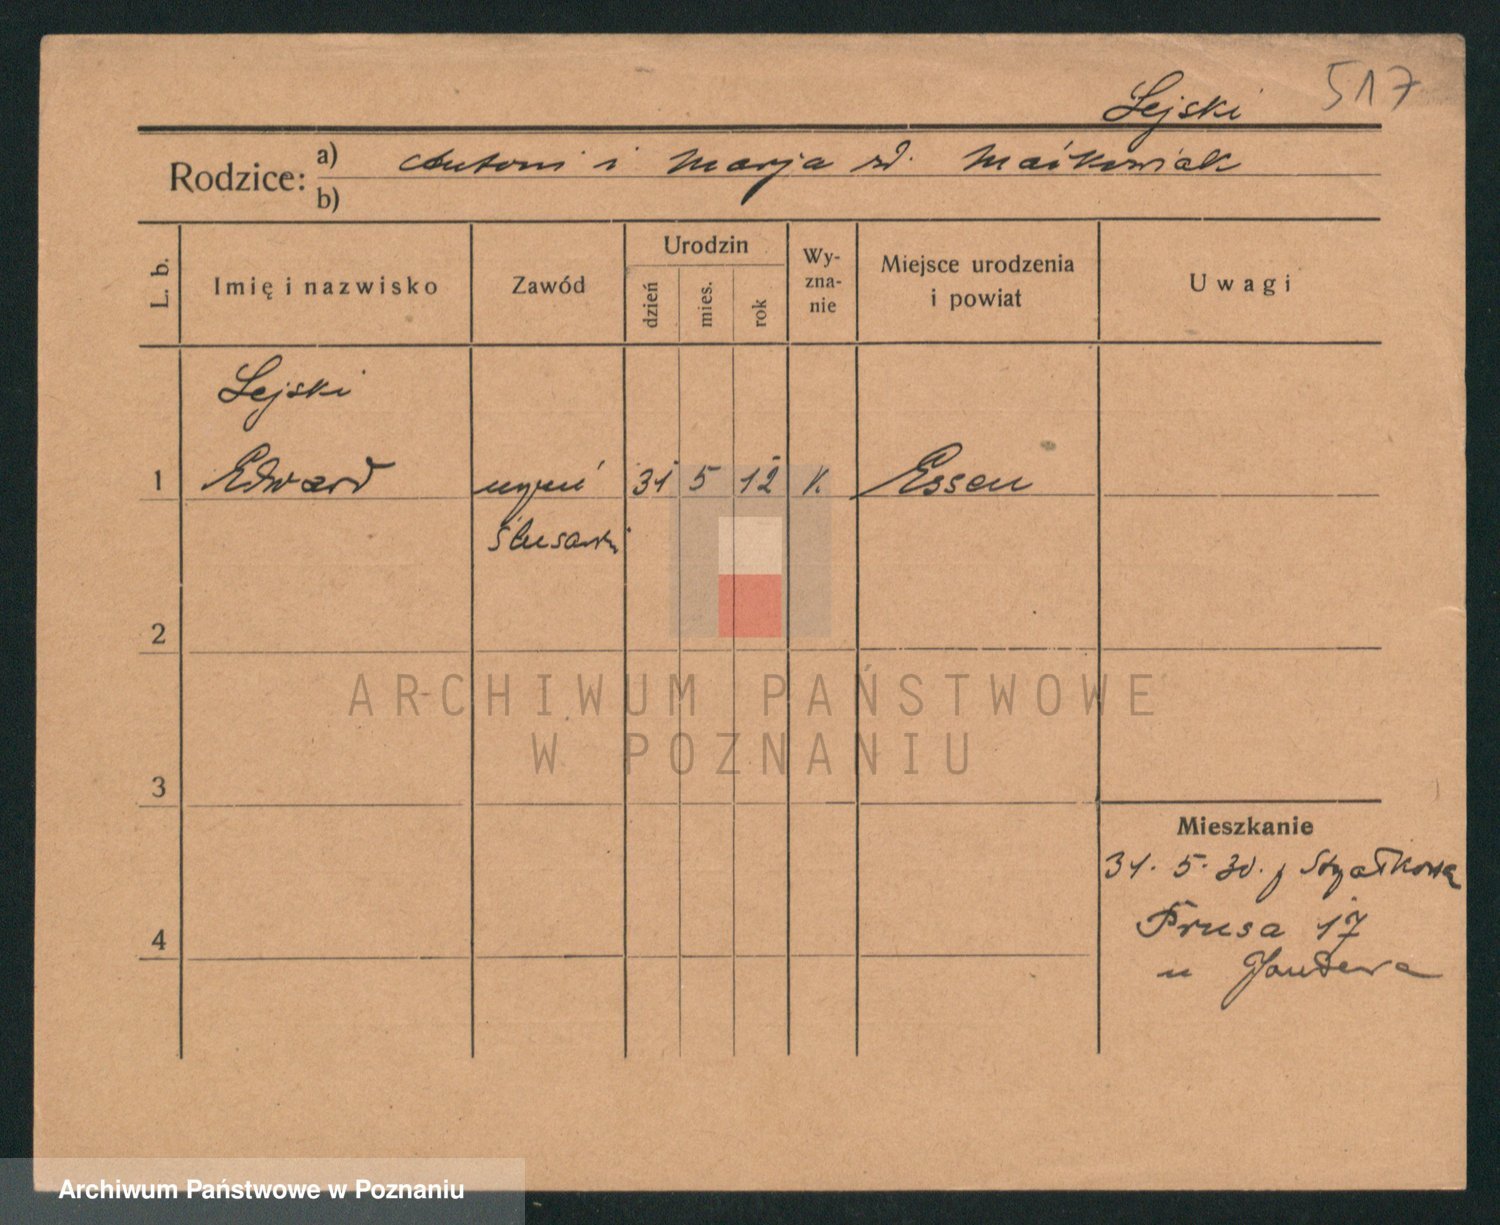 517
Lejski
Rodzice: a) Antoni i Marja zd. Maćkowiak
b)
L. b. Imię i nazwisko Zawód Urodzin dzień mies. rok Wy-zna-nie Miejsce urodzenia i powiat Uwagi
Lejski
1 Edward uczeń 31 5 12 k. Essen
ślusarski
2
ARCHIWUM PAŃSTWOWE
W POZNANIU
3
Mieszkanie
31. 5. 30.
4 Prusa 17
u
Archiwum Państwowe w Poznaniu